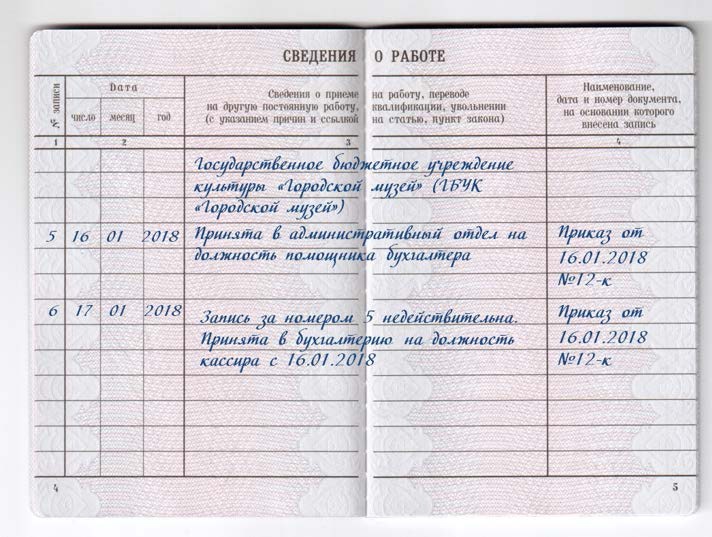 СВЕДЕНИЯ О РАБОТЕ
№ записи
Дата
Сведения о приеме на работу, переводе
на другую постоянную работу, квалификации, увольнении
(с указанием причин и ссылкой на статью, пункт закона)
Наименование,
дата и номер документа,
на основании которого
внесена запись
число месяц год
1 2 3 4
Государственное бюджетное учреждение
культуры «Городской музей» (ГБУК
«Городской музей»)
5 16 01 2018 Принята в административный отдел на Приказ от
должность помощника бухгалтера 16.01.2018
№12-к
6 17 01 2018 Запись за номером 5 недействительна. Приказ от
Принята в бухгалтерию на должность 16.01.2018
кассира с 16.01.2018 №12-к
4 5